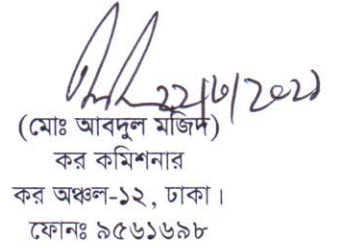 ২২/৩/২০২১
(মোঃ আবদুল মজিদ)
কর কমিশনার
কর অঞ্চল-১২, ঢাকা।
ফোনঃ ৯৫৬১৬৯৮